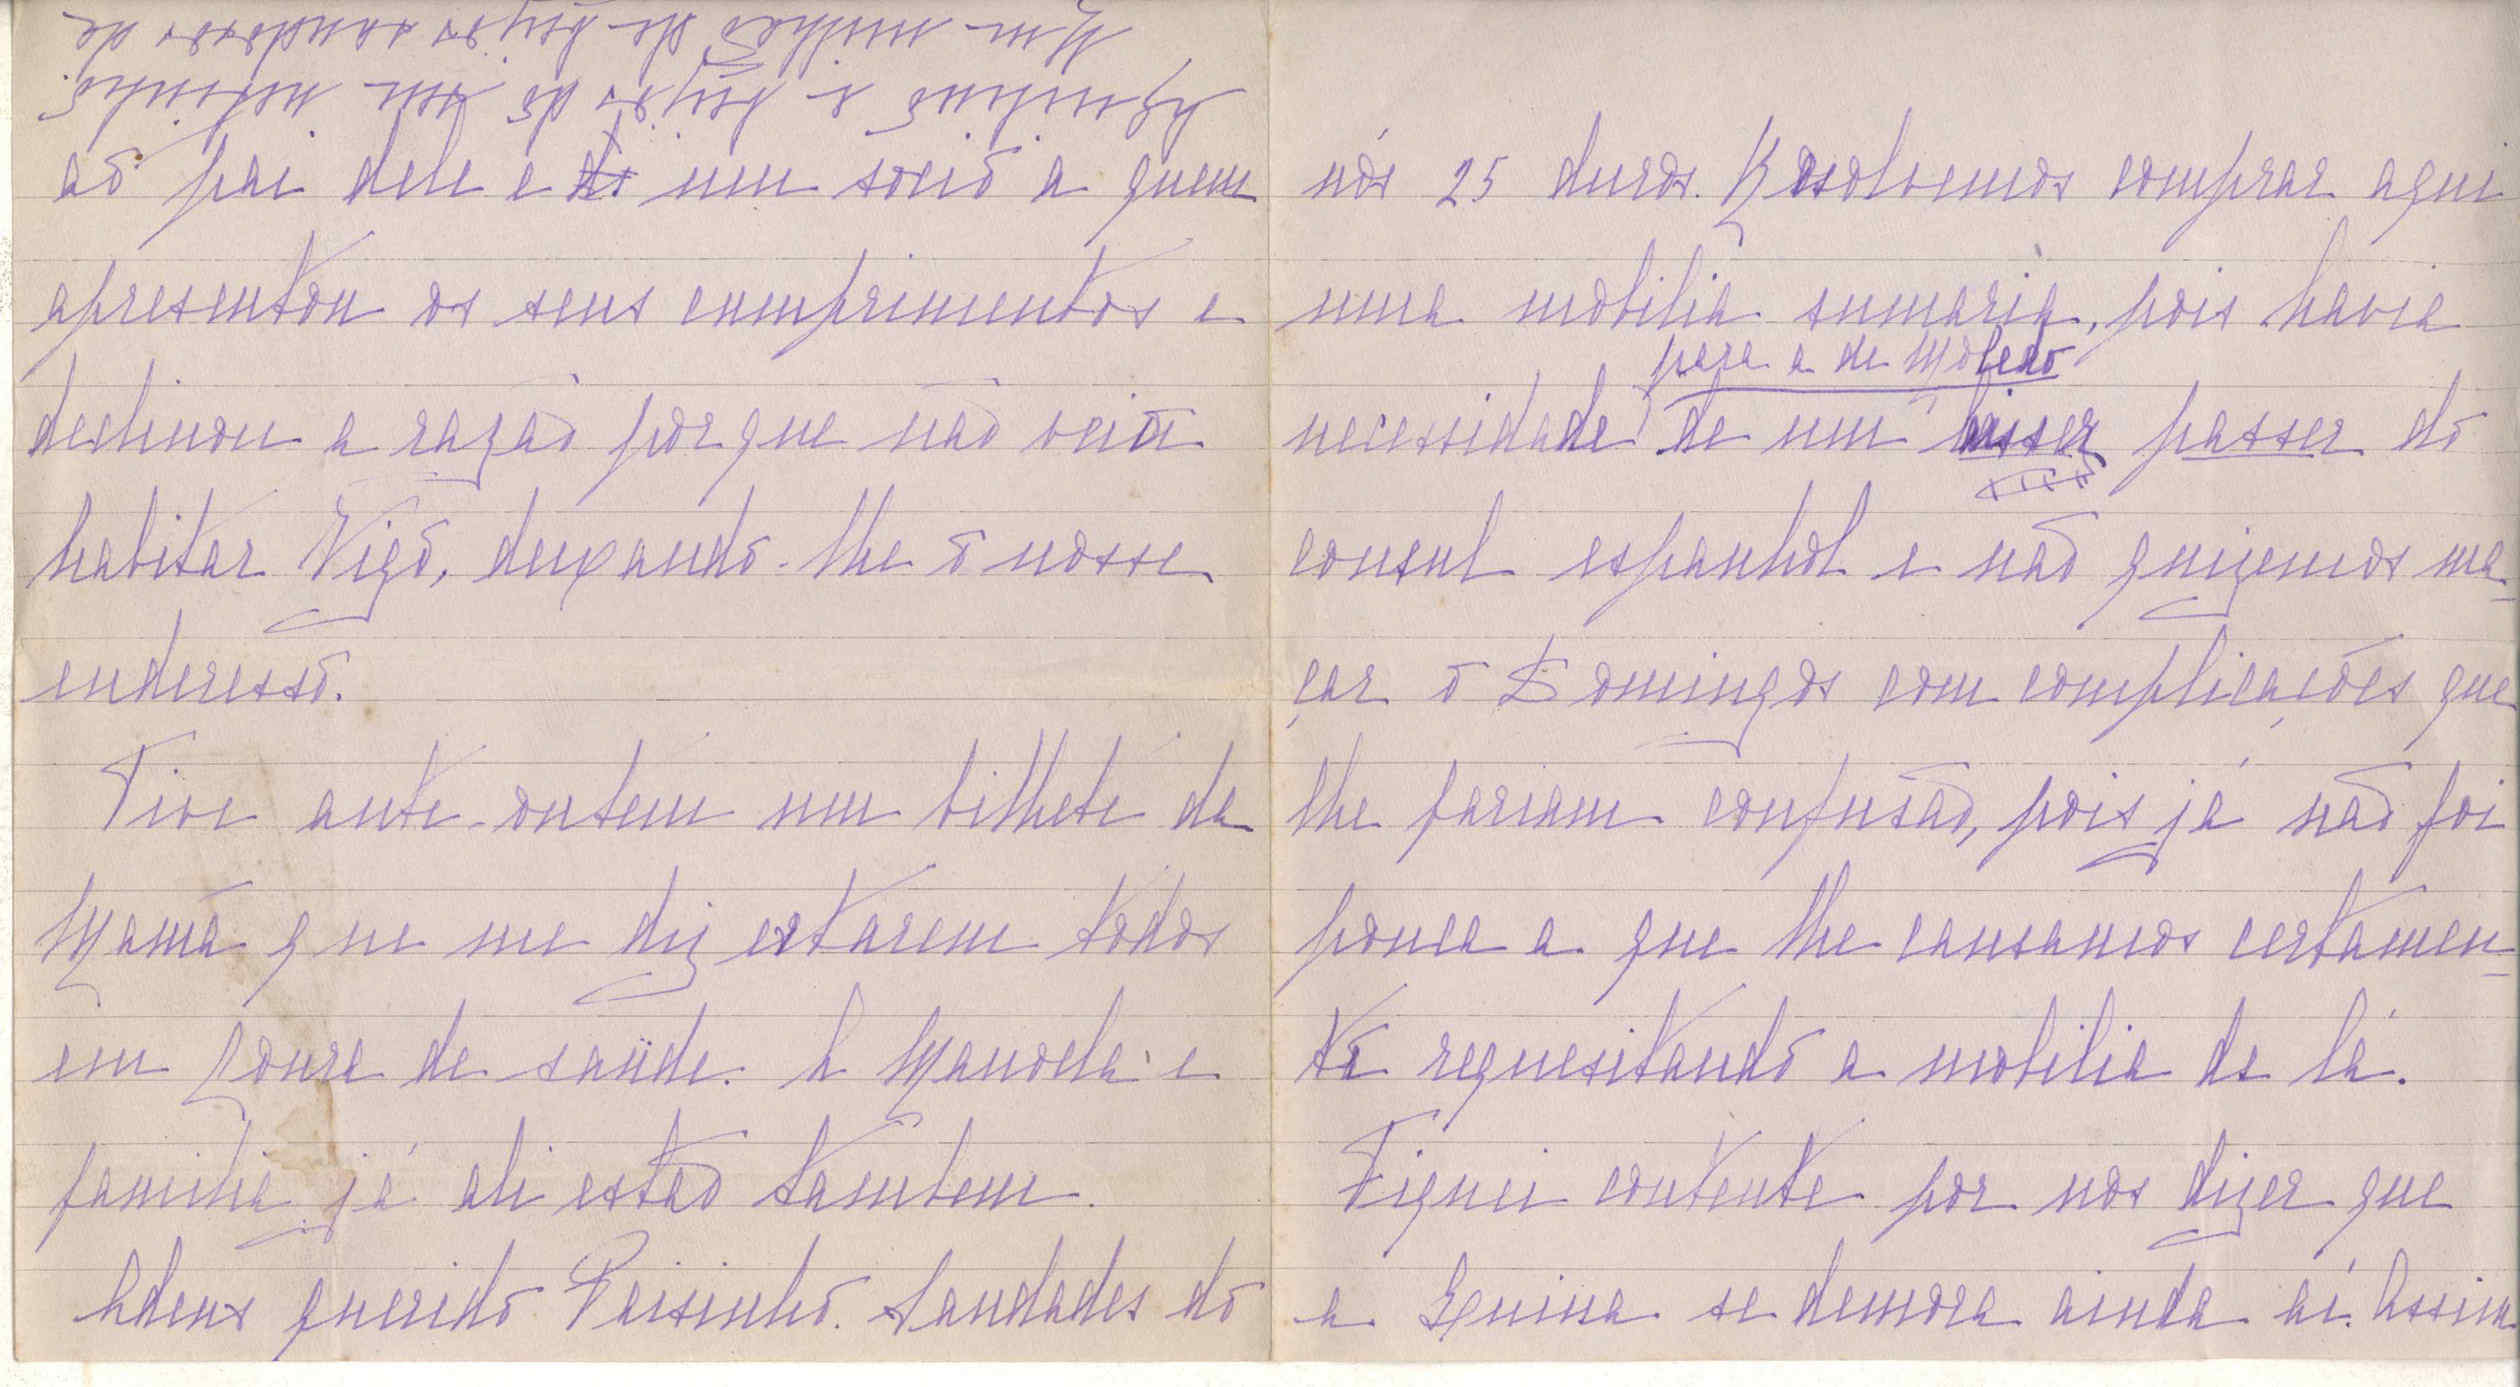 ao pai dele e um socio a quem
apresentou os seus cumprimentos e
declinou a razão porque não veiu
habitar Vigo, deixando-lhe o nosso
enderesso.
Tive ante-ontem um bilhete da
Mamã que me diz estarem todos
em Goura de saúde. A Manoela e
familia já ali estão tambem.
Adeus querido Paisinho. Saudades do
e beijos do seu netinho.
Um milhão de beijos saudosos de
nós 25 duros. Resolvemos comprar aqui
uma mobilia sumaria, pois havia
para a de Moledo
necessidade de um passer do
consul espanhol e não quizemos ma-
çar o Domingos com complicações que
lhe fariam confusão, pois já não foi
pouca a que lhe causamos certamen-
te requesitando a mobilia de lá.
Fiquei contente por nos dizer que
a Xuina se demora ainda aí. Assim